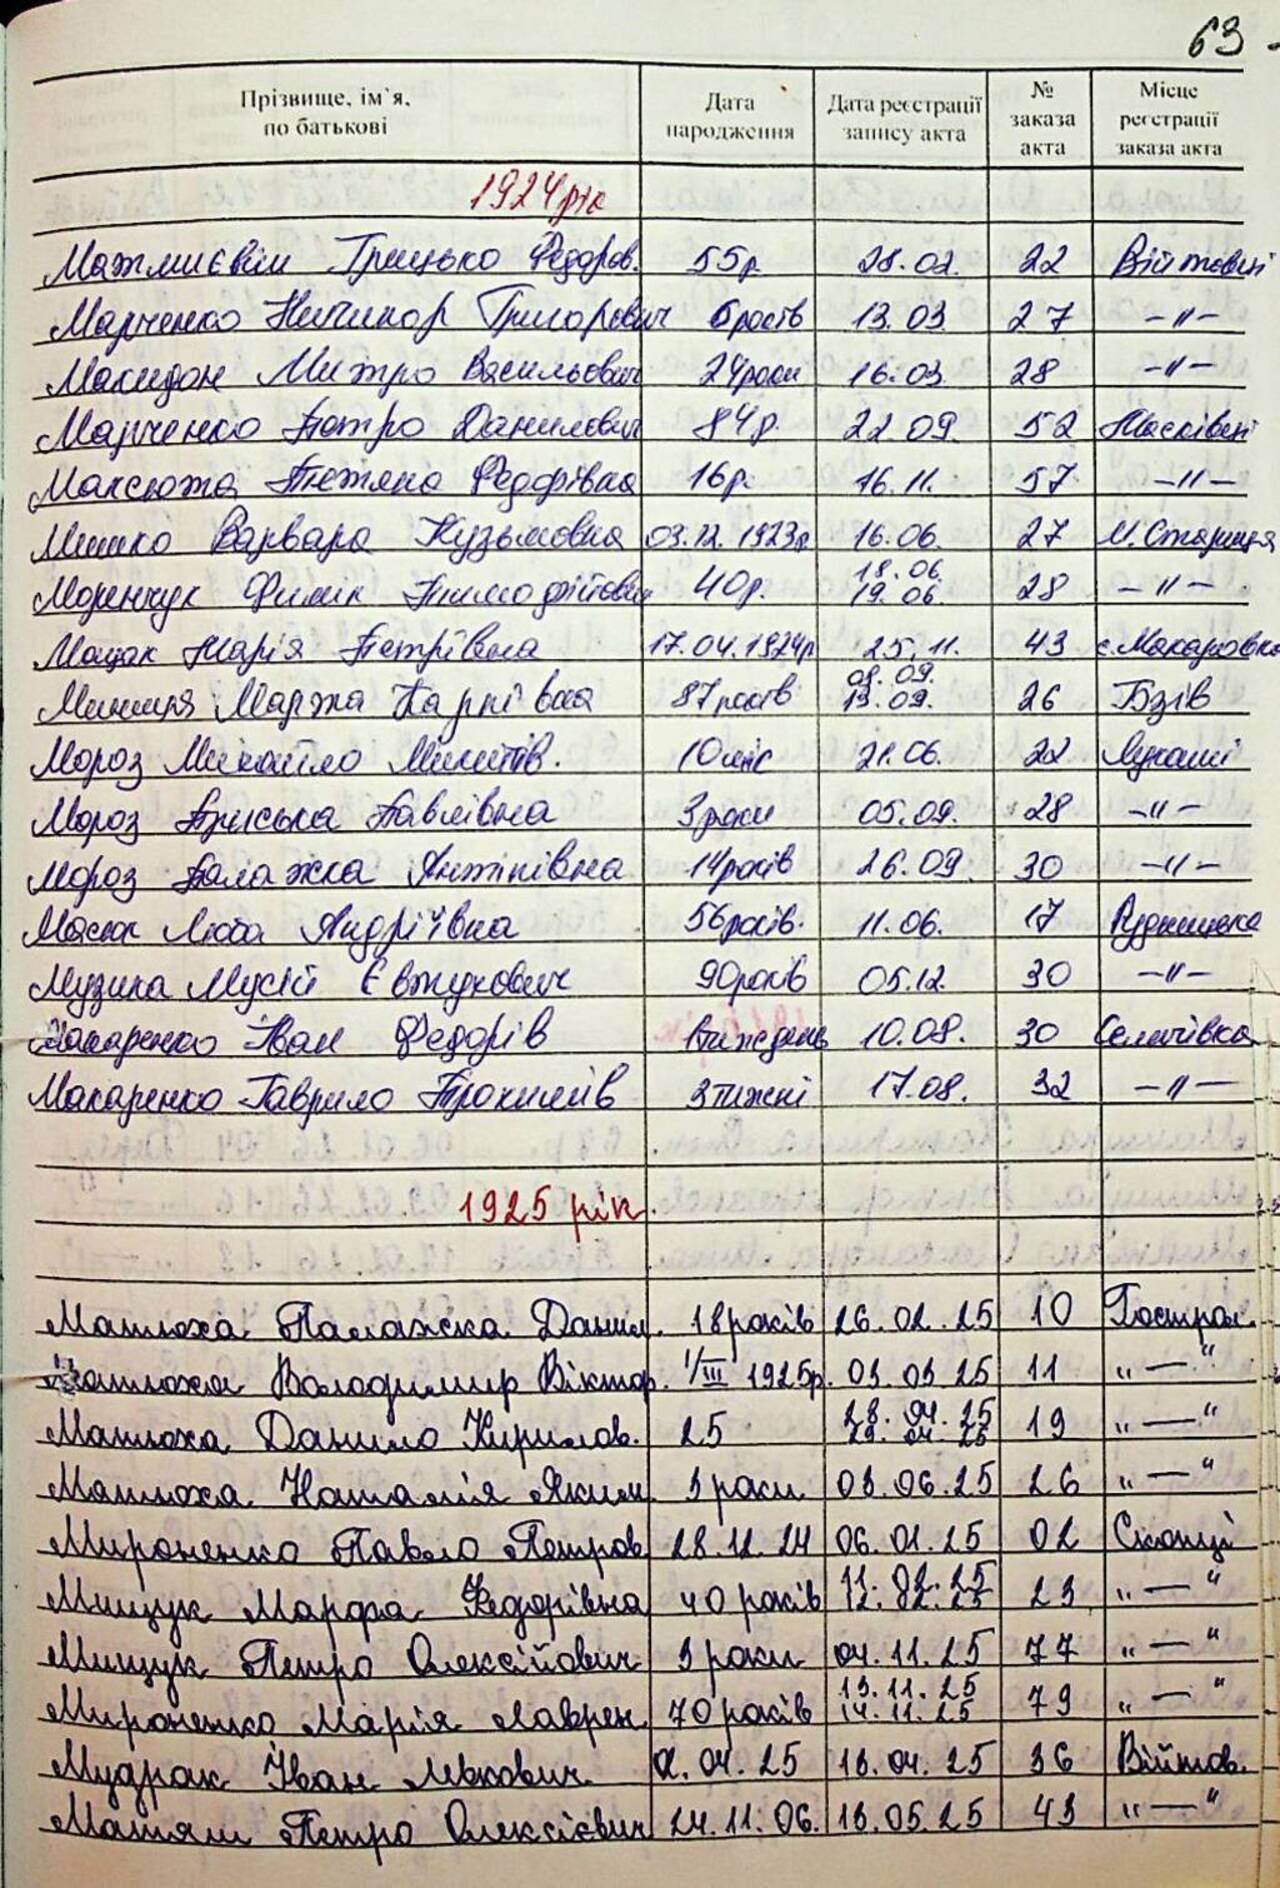 63
Прізвище, ім`я, по батькові Дата народження Дата реєстрації запису акта № заказа акта Місце реєстрації заказа акта
1924 рік
Грицько Федоров. 55р 28.02. 22 Війтовці
Марченко Ничипор Григорович 6 років 13.03. 27 —"—
Македон Митро Васильович 24 роки 16.03 28 —"—
Марченко Петро Данилович 84р. 22.09. 52 Масківці
Максюта Тетяна Федорівна 16р. 16.11. 57 —"—
Мишко Варвара Кузьмовна 03.12.1923р 16.06. 27 М. Стариця
Моренчук Филип Тимофійович 40р. 18.06. 19.06. 28 —"—
Мацак Марія Петрівна 17.04.1924р 25.11. 43 с. Макарівка
Марта Карпівна 87 років 08.09. 13.09. 26 Бзів
Мороз Михайло Микитів. 10 міс 21.06. 22 Лукаші
Мороз Приська Павлівна 3 роки 05.09. 28 —"—
Мороз Палажка Антипівна 14 років 26.09. 30 —"—
Масюк Люба Андріївна 56 років. 11.06. 17 Рудницьке
Музика Мусій Євтухович 90 років 05.12. 30 —"—
Макаренко Іван Федорів 1 тиждень 10.08. 30 Селичівка
Макаренко Гаврило Прокипів 3 тижні 17.08. 32 —"—
1925 рік.
Матюха Палажка Данил. 18 років 26.02.25 10 Гострол.
Матюха Володимир Віктор. 1/III 1925р. 03.03.25 11 "—"
Матюха Данило Кирилов. 25 28.04.25 29.04.25 19 "—"
Матюха Наталія Яким. 3 роки 03.06.25 26 "—"
Мироненко Павло Петров. 28.12.24 06.01.25 02 Скопці
Мищук Марфа Федорівна 40 років 11.02.25 12.02.25 23 "—"
Мищук Петро Олексійович 3 роки 04.11.25 77 "—"
Мироненко Марія Лаврен. 70 років 13.11.25 14.11.25 79 "—"
Мудрак Іван Левкович 04.25 13.04.25 36 Війтов.
Матяш Петро Олексієвич 24.11.06. 13.05.25 43 "—"